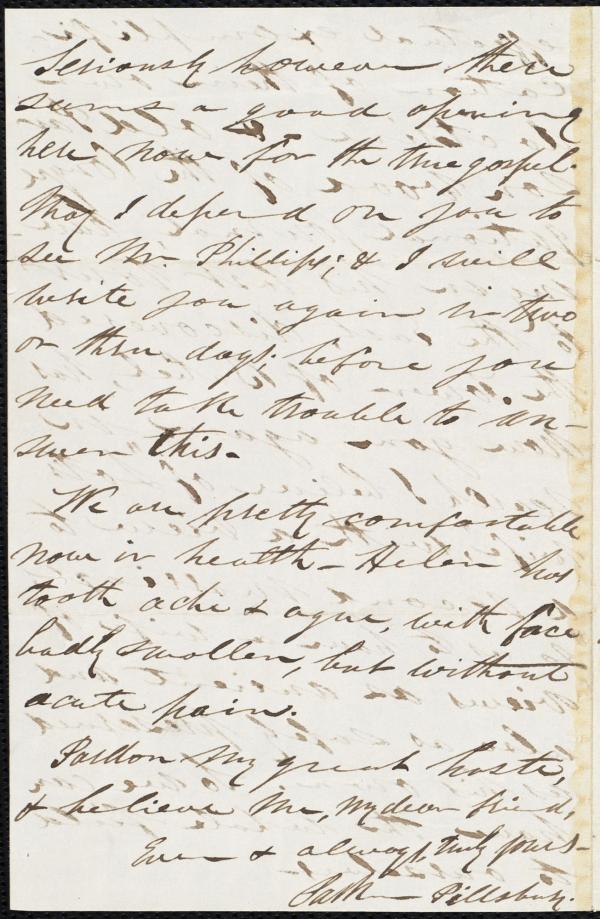 Seriously however there
seems a good opening
here now for the true gospel.
May I depend on you to
see Mr. Phillips; & I will
write you again in two
or three days; before you
need take trouble to an-
swer this.
We are pretty comfortable
now in health - Helen has
tooth ache & ague, with face
badly swollen, but without
acute pain.
Pardon my great haste,
& believe me, my dear friend,
Ever & always, truly yours -
Parker Pillsbury.